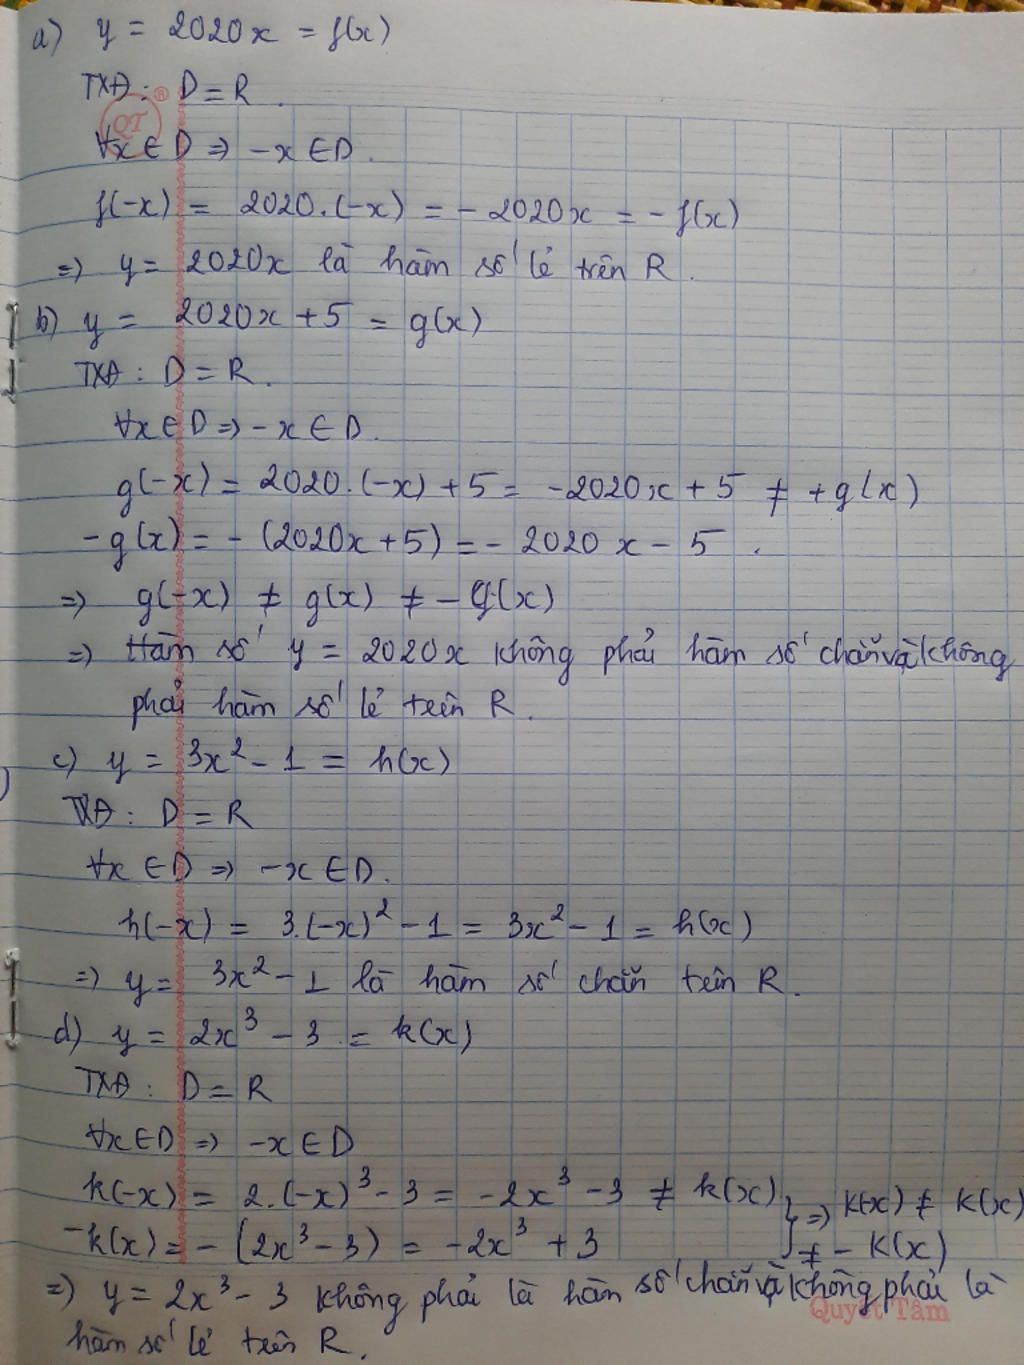 a) y = 2020x = f(x)
TXĐ: D = R.
QT ®
∀x ∈ D ⇒ -x ∈ D.
f(-x) = 2020.(-x) = -2020x = -f(x)
⇒ y = 2020x là hàm số lẻ trên R.
b) y = 2020x + 5 = g(x)
TXĐ: D = R.
∀x ∈ D ⇒ -x ∈ D.
g(-x) = 2020.(-x) + 5 = -2020x + 5 ≠ +g(x)
-g(x) = -(2020x + 5) = -2020x - 5.
⇒ g(-x) ≠ g(x) ≠ -g(x)
⇒ Hàm số y = 2020x không phải hàm số chẵn và không
phải hàm số lẻ trên R.
c) y = 3x² - 1 = h(x)
TXĐ: D = R
∀x ∈ D ⇒ -x ∈ D.
h(-x) = 3.(-x)² - 1 = 3x² - 1 = h(x)
⇒ y = 3x² - 1 là hàm số chẵn trên R.
d) y = 2x³ - 3 = k(x)
TXĐ: D = R
∀x ∈ D ⇒ -x ∈ D
k(-x) = 2.(-x)³ - 3 = -2x³ - 3 ≠ k(x) } ⇒ k(x) ≠ k(x)
-k(x) = -(2x³ - 3) = -2x³ + 3 ≠ -k(x)
⇒ y = 2x³ - 3 không phải là hàm số chẵn và không phải là
Quyết Tâm
hàm số lẻ trên R.